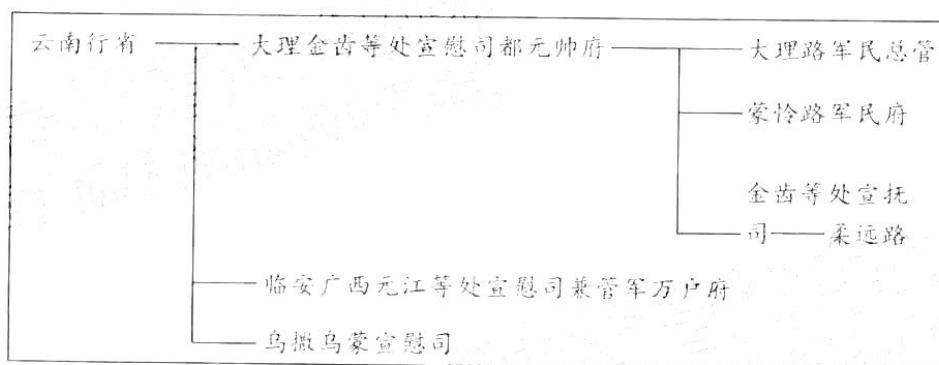 云南行省 大理金齿等处宣慰司都元帅府 大理路军民总管
蒙怜路军民府
金齿等处宣抚
司 柔远路
临安广西元江等处宣慰司兼管军万户府
乌撒乌蒙宣慰司